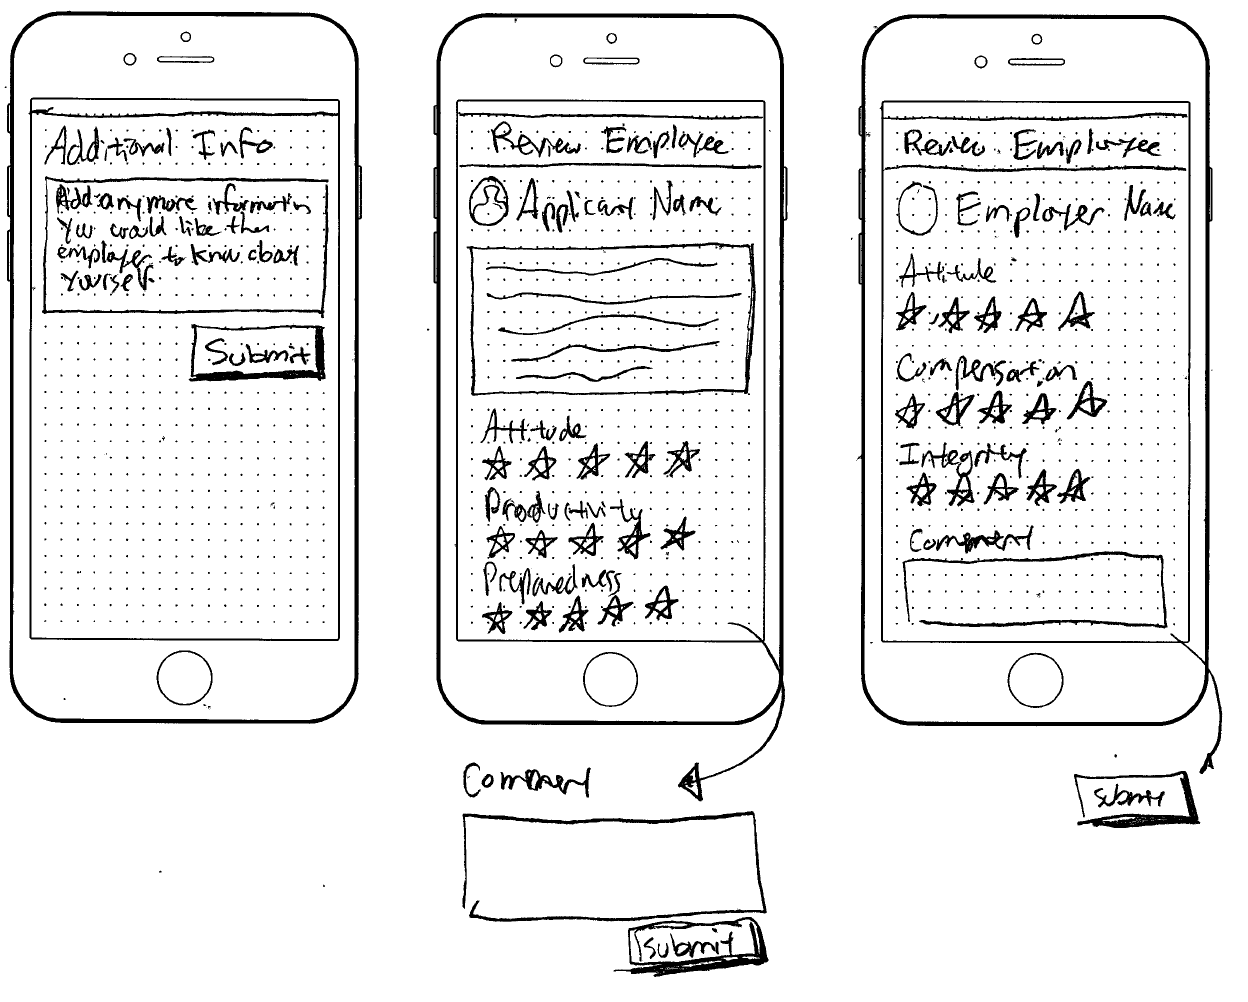 Additional Info
Add any more information
You would like the
employer to know about
yourself.
Submit
Review Employee
Applicant Name
Attitude
Productivity
Preparedness
Comment
Submit
Review Employee
Employer Name
Attitude
Compensation
Integrity
Comment
Submit